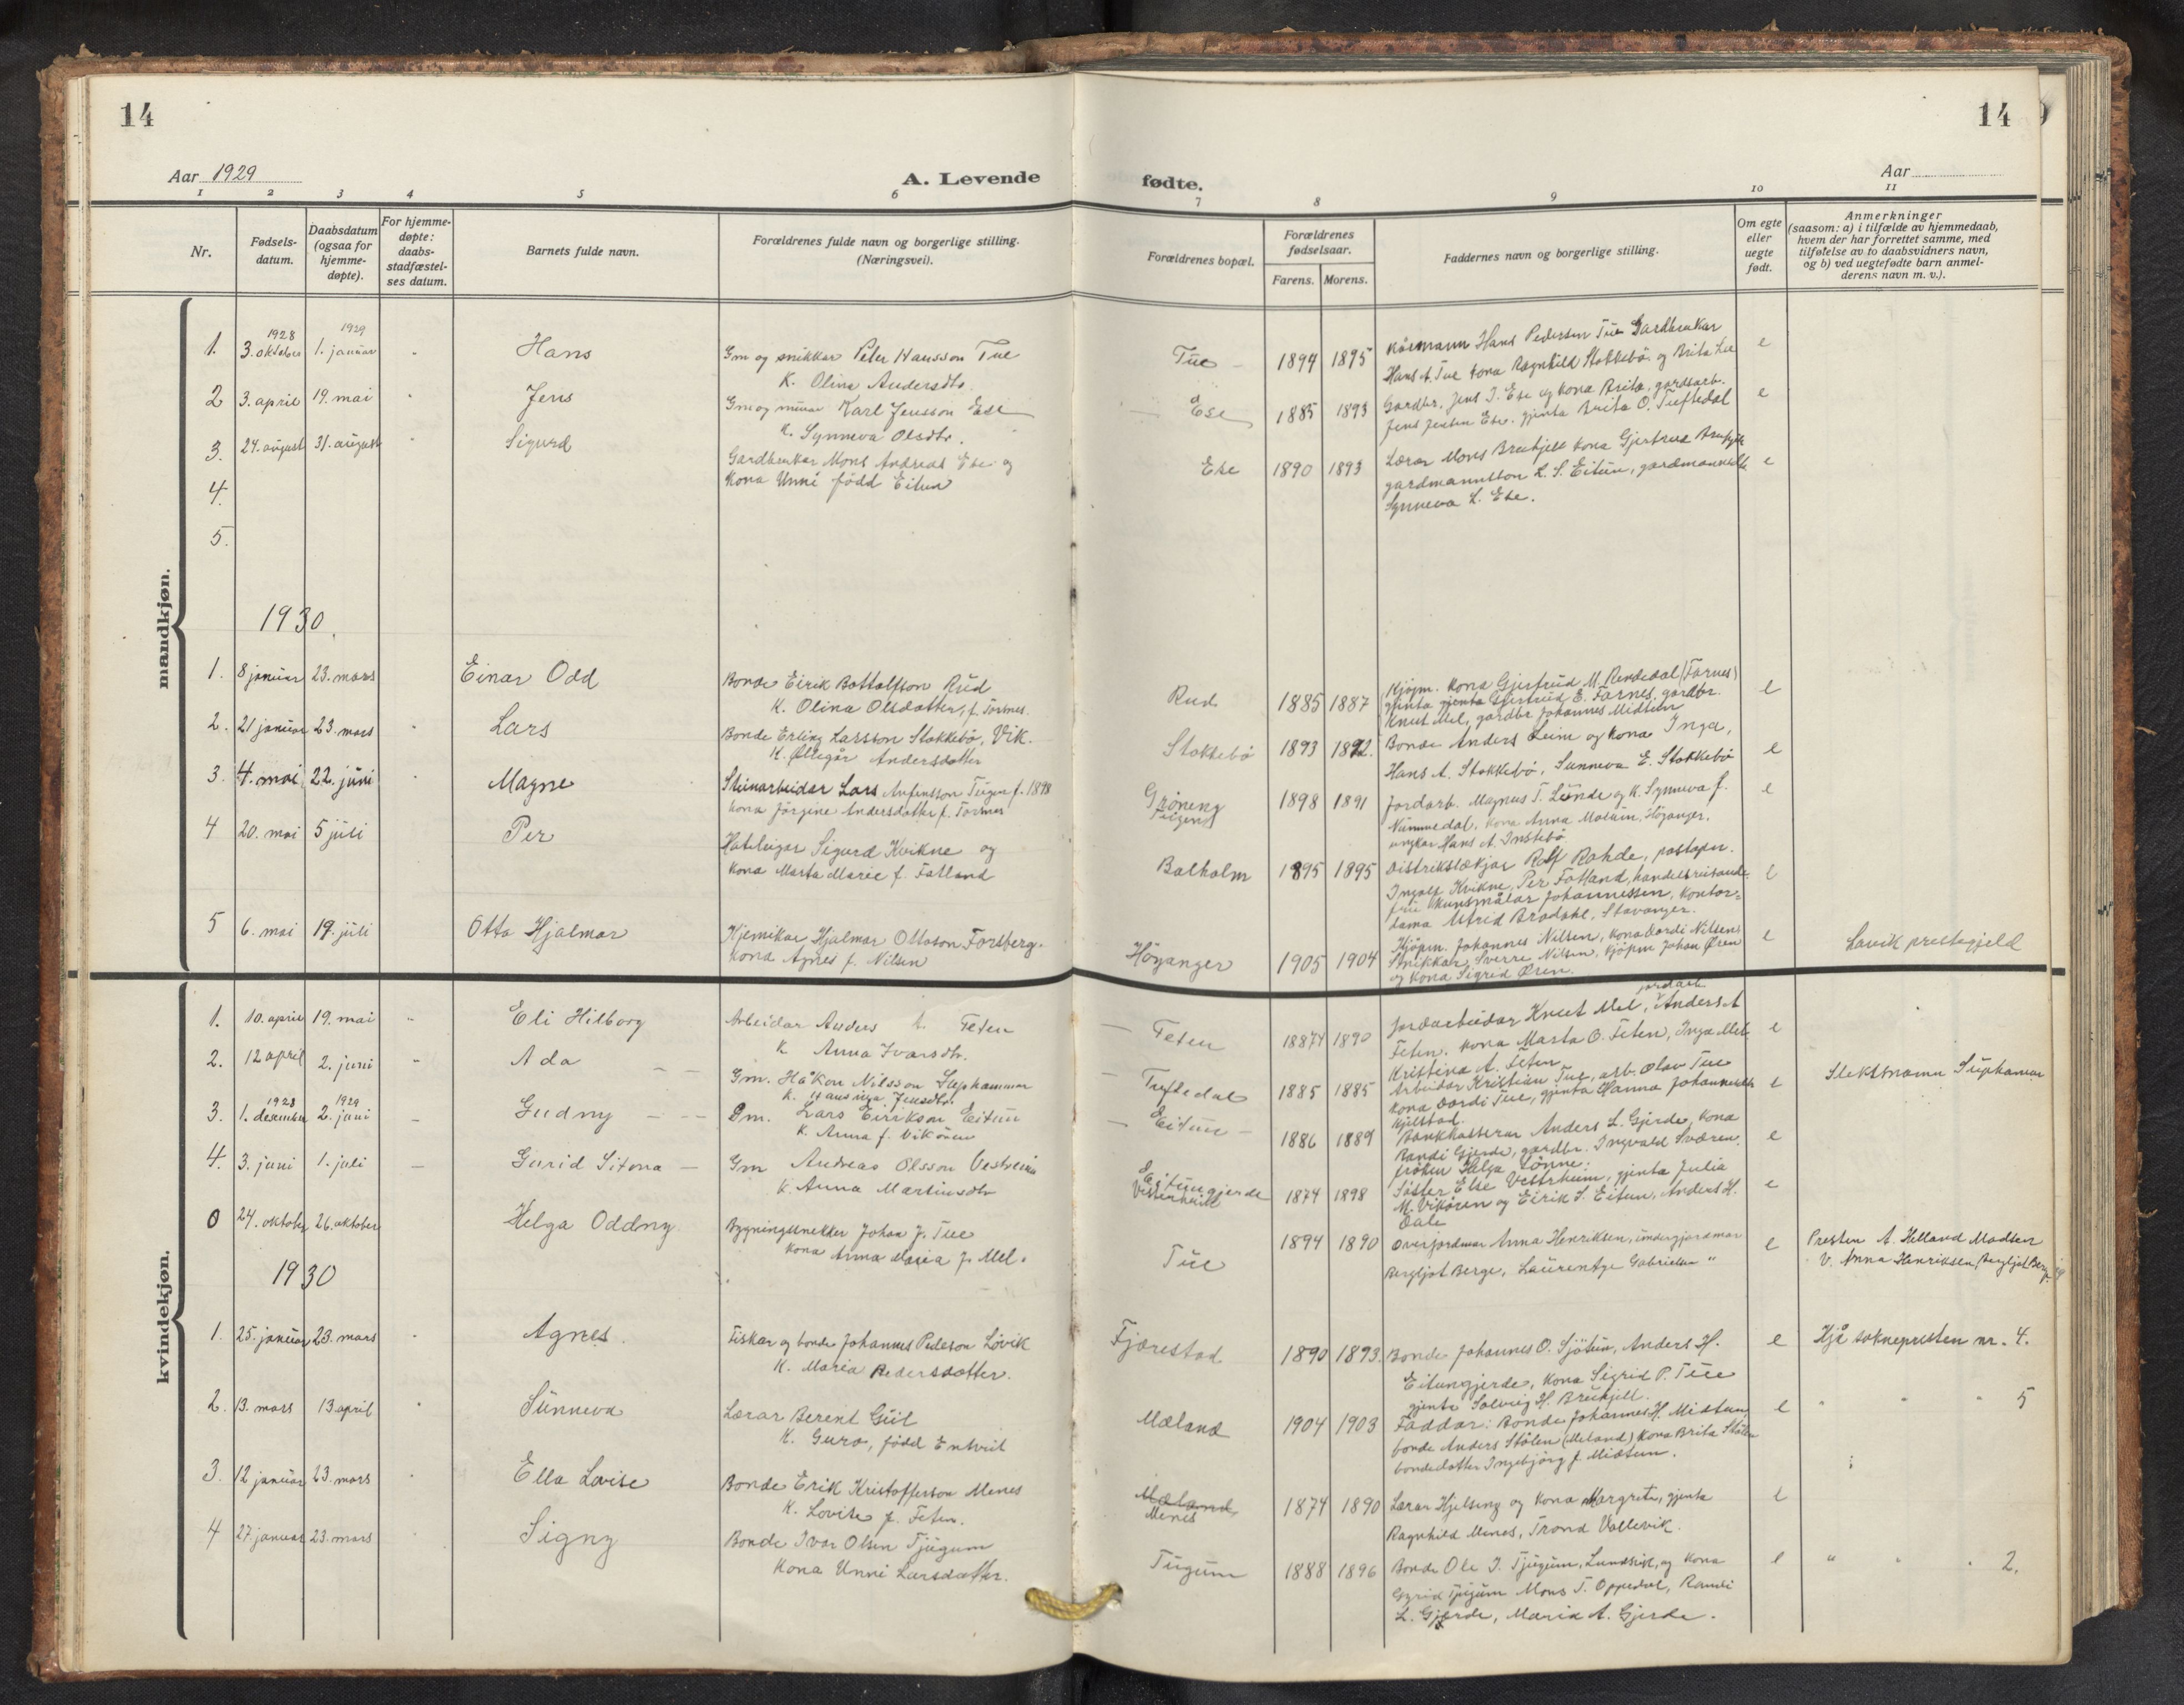 14
14
Aar 1929
A. Levende
fødte.
Aar
1 2 3 4 5 6 7 8 9 10 11
Nr.
Fødsels-
datum.
Daabsdatum
(ogsaa for
hjemme-
døpte).
For hjemme-
døpte:
daabs-
stadfæstel-
ses datum.
Barnets fulde navn.
Forældrenes fulde navn og borgerlige stilling.
(Næringsvei).
Forældrenes bopæl.
Forældrenes
fødselsaar.
Farens. Morens.
Faddernes navn og borgerlige stilling.
Om egte
eller
uegte
født.
Anmerkninger
(saasom: a) i tilfælde av hjemmedaab,
hvem der har forrettet samme, med
tilføielse av to daabsvidners navn,
og b) ved uegtefødte barn anmel-
derens navn m. v.).
mandkjøn.
1928 1929
1. 3. oktober 1. januar " Hans
Gm og snikkar Peter Hansson Tue
K. Olina Andersdtr.
Tue 1894 1895
Hans Pedersen Tue Gardbrukar
Hans A. Tue kona Ragnhild Stokkebö og Brita Lee
e
2 3. april 19. mai " Jens
Gm og murar Karl Jensson Ese
K. Synneva Olsdtr.
Ese 1885 1893
Gardbr. Jens J. Ese og kona Brita, gardsarb.
Jens Jensen Ese. gjenta Brita O. Tuftedal
e
3. 24. august 31. august " Sigurd
Gardbrukar Mons Andreas Ese og
kona Unni född Eitun
Ese 1890 1893
Lærar Mons Breukjell kona Gjertrud
gardmannsson L. S. Eitun, gardmannsdtr
Synneva L. Ese.
e
4.
5.
1930.
1. 8 januar 23. mars Einar Odd
Bonde Eirik Bottolfson Rud
K. Olina Olsdotter, f. Farnes.
Rud 1885 1887
Kjöpm. kona Gjertrud M. Rendedal (Farnes)
gjenta Gjertrud E. Farnes, gardbr.
Knut Mel, gardbr Johannes Midtun
e
2. 21 januar 23. mars " Lars
Bonde Erling Larsson Stokkebö, Vik.
K. Øllegår Andersdotter
Stokkebö 1893 1892.
Bonde Anders Leim og kona Inga,
Hans A. Stokkebö, Sunneva E. Stokkebö
e
3. 4. mai 22. juni Magne
Steinarbeidar Lars Anfinsson Teigen f. 1898
kona Jörgine Andersdotter f. Farnes
Gröneng
Teigen
1898 1891
Jordarb. Magnus T. Lunde og K. Synneva f.
Nummedal, kona Anna Masum, Höganger,
ungkar Hans A. Instebö
e
4 20. mai 5 juli Per
Hotleigar Sigurd Kvikne og
kona Marta Marie f. Fatland
Balholm 1895 1895
Distriktslækjar Rolf Rohde, postopn.
Ingolf Kvikne, Per Fatland, handelsreisande
fru kunstmålar Johannessen, kontor-
dama Astrid Brodahl, Stavanger.
e
5 6. mai 19. juli Otto Hjalmar
Kjemikar Hjalmar Ottoson Forsberg.
kona Agnes f. Nilsen
Höyanger 1905 1904
Kjöpm. Johannes Nilsen, kona Dordi Nilsen
Snikkar Sverre Nilsen, kjöpm Johan Øren
og kona Sigrid Øren.
e
Lavik prestegjeld
kvindekjøn.
1. 10. april 19. mai " Eli Hilborg
Arbeidar Anders A. Feten
K Anna Ivarsdtr.
Feten 18874 1890
jordarb
Jordarbeidar Knut Mel, Anders A
Feten. kona Marta O. Feten, Inga Mel
Kristina A. Feten
e
2. 12 april 2. juni " Ada
Gm. Håkon Nilsson Suphammar
K. Jensdtr.
Tuftedal 1885 1885
Arbeidar Kristian Tue, arb. Olav Tue
kona Dordi Tue, gjenta Hanna Johannesdtr
Kjelstad.
e
Slektsnamn Suphamar
1928 1929
3. 1. desember 2. juni Gudny
Gm. Lars Eirikson Eitun
K. Anna f. Vikören
Eitun 1886 1889
Bankkasserar Anders L. Gjerde, kona
Randi Gjerde, gardbr. Ingvald Sværen.
fröken Helga Lönne.
e
4. 3. juni 1. juli Gurid Sitona
Gm Andreas Olsson
K. Anna Martinsdtr
Eitungjerde
1874 1898
Söster Else Vestrheim, gjenta Julia
M. Vikören og Eirik S. Eitun, Anders H.
Dale
e
0 24. oktober 26. oktober Helga Oddny
Bygningssnekker Johan J. Tue
kona Anna Maria f. Mel.
Tue 1894 1890
Overjordmor Anna Henriksen, undergjordmor
Bergljot Berge, Laurentze Gabrielsen "
e
Presten A. Helland Madsen
V. Anna Henriksen, Bergljot Berge
1930
1. 25. januar 23. mars " Agnes.
Fiskar og bonde Johannes Pederson Lövik
K. Maria Pedersdotter.
Fjærestad 1890 1893.
Bonde Johannes O. Sjötun, Anders H.
Eitungjerde, kona Sigrid P. Tue
gjenta Solveig H. Breukjell.
e
Hjå soknepresten nr. 4.
2. 13. mars 13 april " Sunneva
Lærar Berent Guil
K. Guro, född
Mæland 1904 1903
Faddar: Bonde Johannes H. Midtun
bonde Anders Stölen (Meland) kona Brita Stölen
bondedotter Ingebjörg J Midtun.
e
" " " 5
3. 12 januar 23. mars " Ella Lovise
Bonde Erik Kristofferson Menes
K. Lovise f. Feten.
Mæland
Menes
1874 1890
Lærar Hjelseng og kona Margrete, gjenta
Ragnhild Menes, Trond Vallevik.
e
4 27. januar 23. mars Signy
Bonde Ivar Olsen Tjugum
kona Unni Larsdotter.
Tugum 1888 1896
Bonde Ole I. Tjugum, og kona
Tjugum Mons T. Oppedal, Randi
L. Gjerde, Maria A. Gjerde.
e
" " " 2.